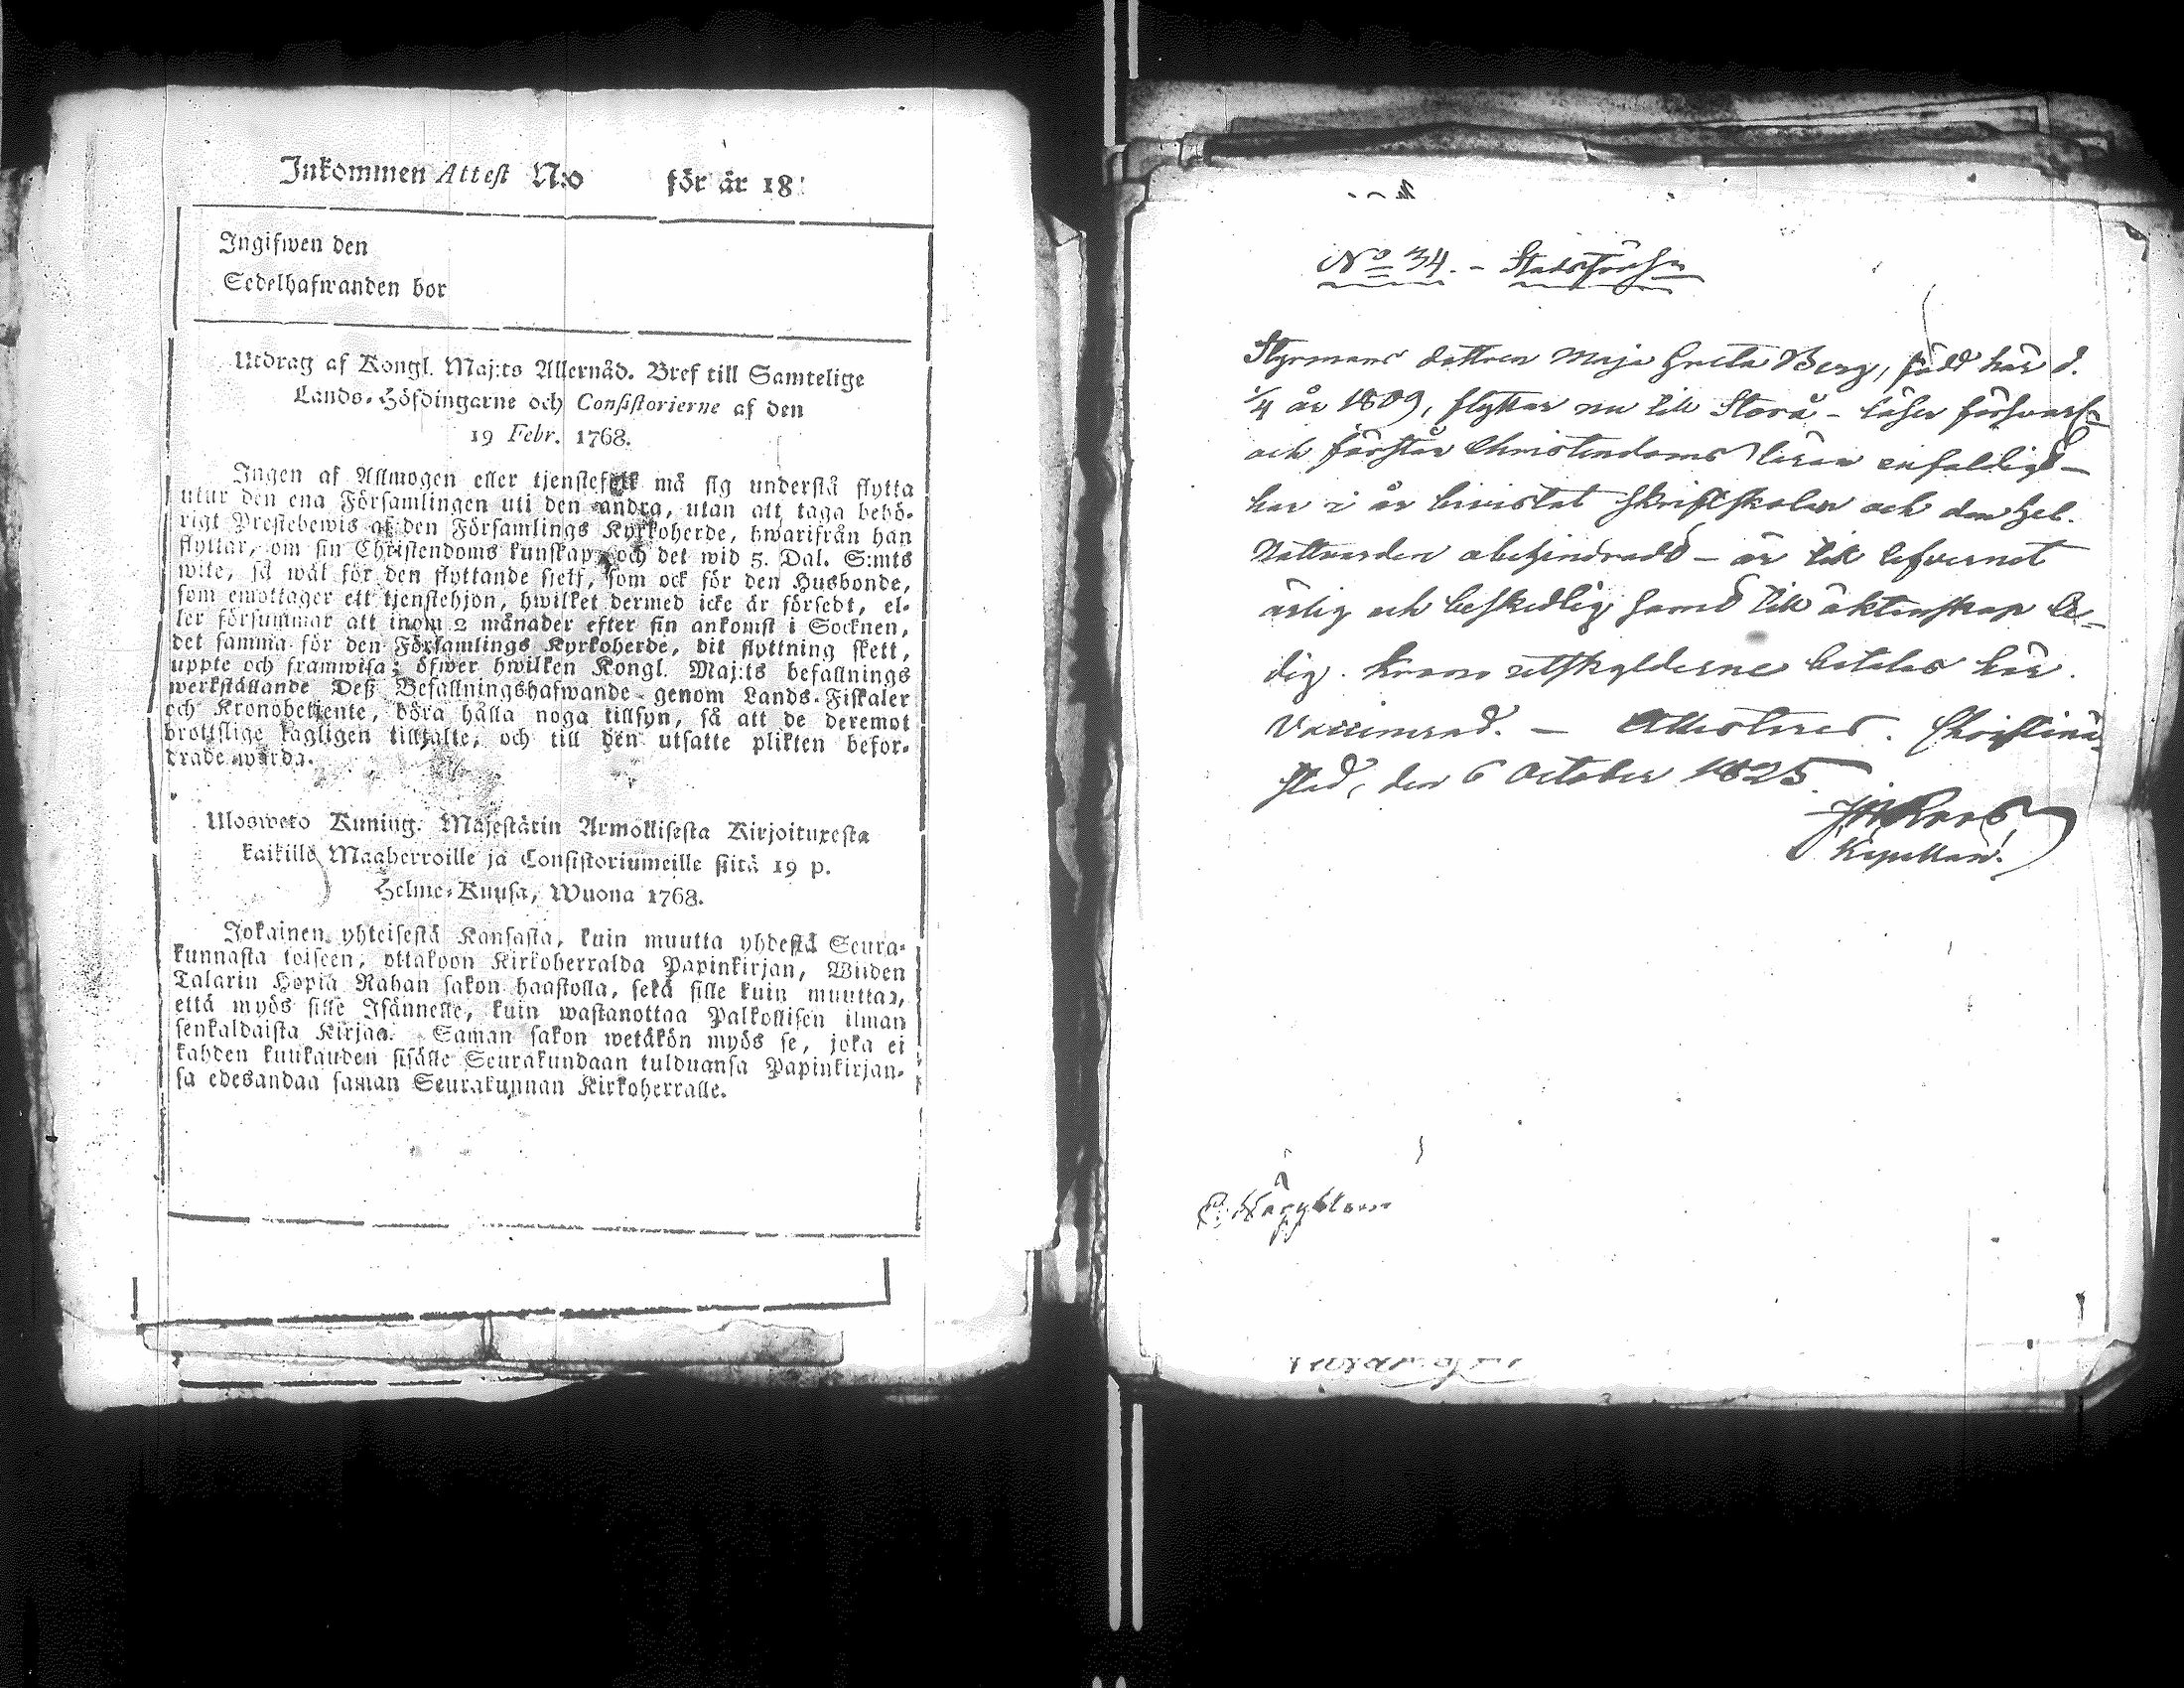 Inkommen Attest N:o för år 18
Ingifwen den
Sedelhafwanden bor
Utdrag af Kongl. Maj:ts Allernåd. Bref till Samtelige
Lands-Höfdingarne och Consistorierne af den
19 Febr. 1768.
Ingen af Allmogen eller tjenstefolk må sig understå flytta
utur den ena Församlingen uti den andra, utan att taga behö-
rigt Prestebewis af den Församlings Kyrkoherde, hwarifrån han
flyttar, om sin Christendoms kunskap och det wid 5. Dal. S:mts
wite, så wäl för den flyttande sjelf, som ock för den Husbonde,
som emottager ett tjenstehjon, hwilket dermed icke är försedt, el-
ler försummar att inom 2 månader efter sin ankomst i Socknen,
det samma för den Församlings Kyrkoherde, dit flyttning skett,
uppte och framwisa; öfwer hwilken Kongl. Maj:ts befallnings
werkställande Deß Befallningshafwande genom Lands-Fiskaler
och Kronobetjente, böra hålla noga tillsyn, så att de deremot
brottslige lagligen tilltalte, och till den utsatte plikten befor-
drade warda.
Ulosweto Kuning. Majestätin Armollisesta Kirjoituxesta
kaikille Maaherroille ja Consistoriumeille siitä 19 p.
Helme-Kuusa, Wuona 1768.
Jokainen yhteisestä Kansasta, kuin muutta yhdestä Seura-
kunnasta toiseen, ottakoon Kirkoherralda Papinkirjan, Wiiden
Talarin Hopia Rahan sakon haastolla, sekä sille kuin muuttaa,
että myös sille Isännelle, kuin wastanottaa Palkollisen ilman
senkaldaista Kirjaa. Saman sakon wetäkön myös se, joka ei
kahden kuukauden sisälle Seurakundaan tulduansa Papinkirjan-
sa edesandaa saman Seurakunnan Kirkoherralle.
No 34. -
Styrmans dottren Maja Greta Berg, född här d.
1/4 år 1809, flyttar nu till Storå - läser försvarl.
och förstår Christendoms läran enfaldigt -
har i år bivistat Skriftskolan och den Hel.
Nattvarden obehindradt - är till lefvernet
ärlig och beskedlig samt till äktenskap le-
dig. Krono utskylderne betalas här.
Vaccinerad. - Attesteras. Christinæ-
stad, den 6 October 1825.
Kapellan.